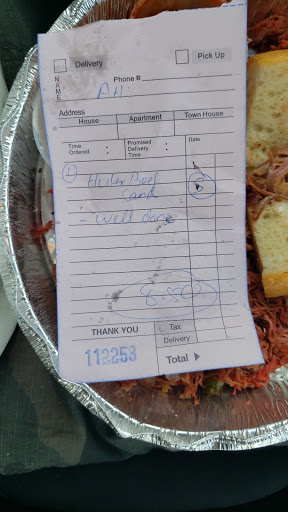 Delivery Pick Up
NAME
Phone #
AH
Address
House Apartment Town House
Time Ordered : Promised Delivery Time : Date
1
Beef
Sand
- Well done
8.50
THANK YOU Tax
Delivery
112258 Total